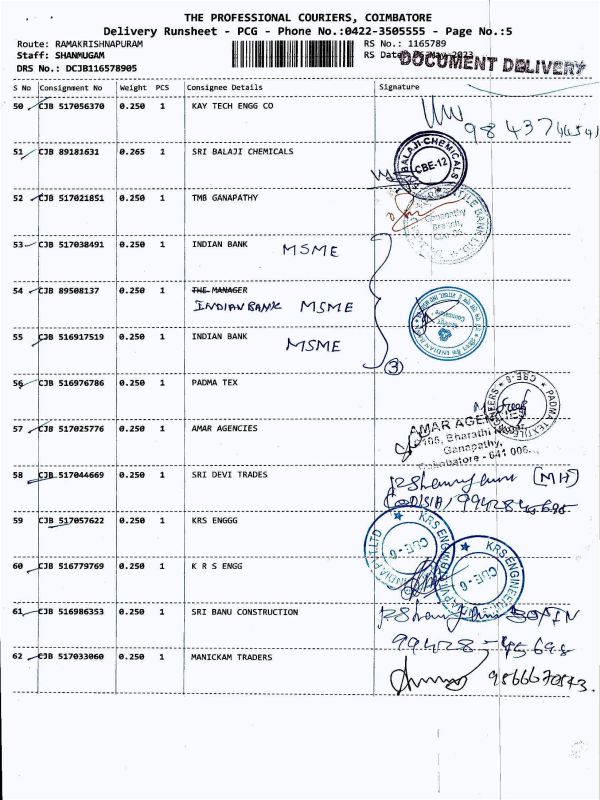 THE PROFESSIONAL COURIERS, COIMBATORE
Delivery Runsheet - PCG - Phone No.:0422-3505555 - Page No.:5
Route: RAMAKRISHNAPURAM RS No.: 1165789
Staff: SHANMUGAM RS Date
DOCUMENT DELIVERY
DRS No.: DCJB116578905
S No Consignment No Weight PCS Consignee Details Signature
50 CJB 517056370 0.250 1 KAY TECH ENGG CO
51 CJB 89181631 0.265 1 SRI BALAJI CHEMICALS
BALAJI CHEMICALS
CBE-12
52 CJB 517021851 0.250 1 TMB GANAPATHY
Ganapathy
Branch,
53 CJB 517038491 0.250 1 INDIAN BANK MSME
54 CJB 89508137 0.250 1 THE MANAGER
INDIAN BANK MSME
55 CJB 516917519 0.250 1 INDIAN BANK
MSME
3
56 CJB 516976786 0.250 1 PADMA TEX
PADMA TEXTILE
CBE-6
57 CJB 517025776 0.250 1 AMAR AGENCIES
AMAR AGENCIES
Bharathi
Ganapathy,
Coimbatore - 641 006.
58 CJB 517044669 0.250 1 SRI DEVI TRADES
(MH)
59 CJB 517057622 0.250 1 KRS ENGGG
60 CJB 516779769 0.250 1 K R S ENGG
KRS ENGINEERING
61 CJB 516986353 0.250 1 SRI BANU CONSTRUCTION
99428-45698
62 CJB 517033060 0.250 1 MANICKAM TRADERS